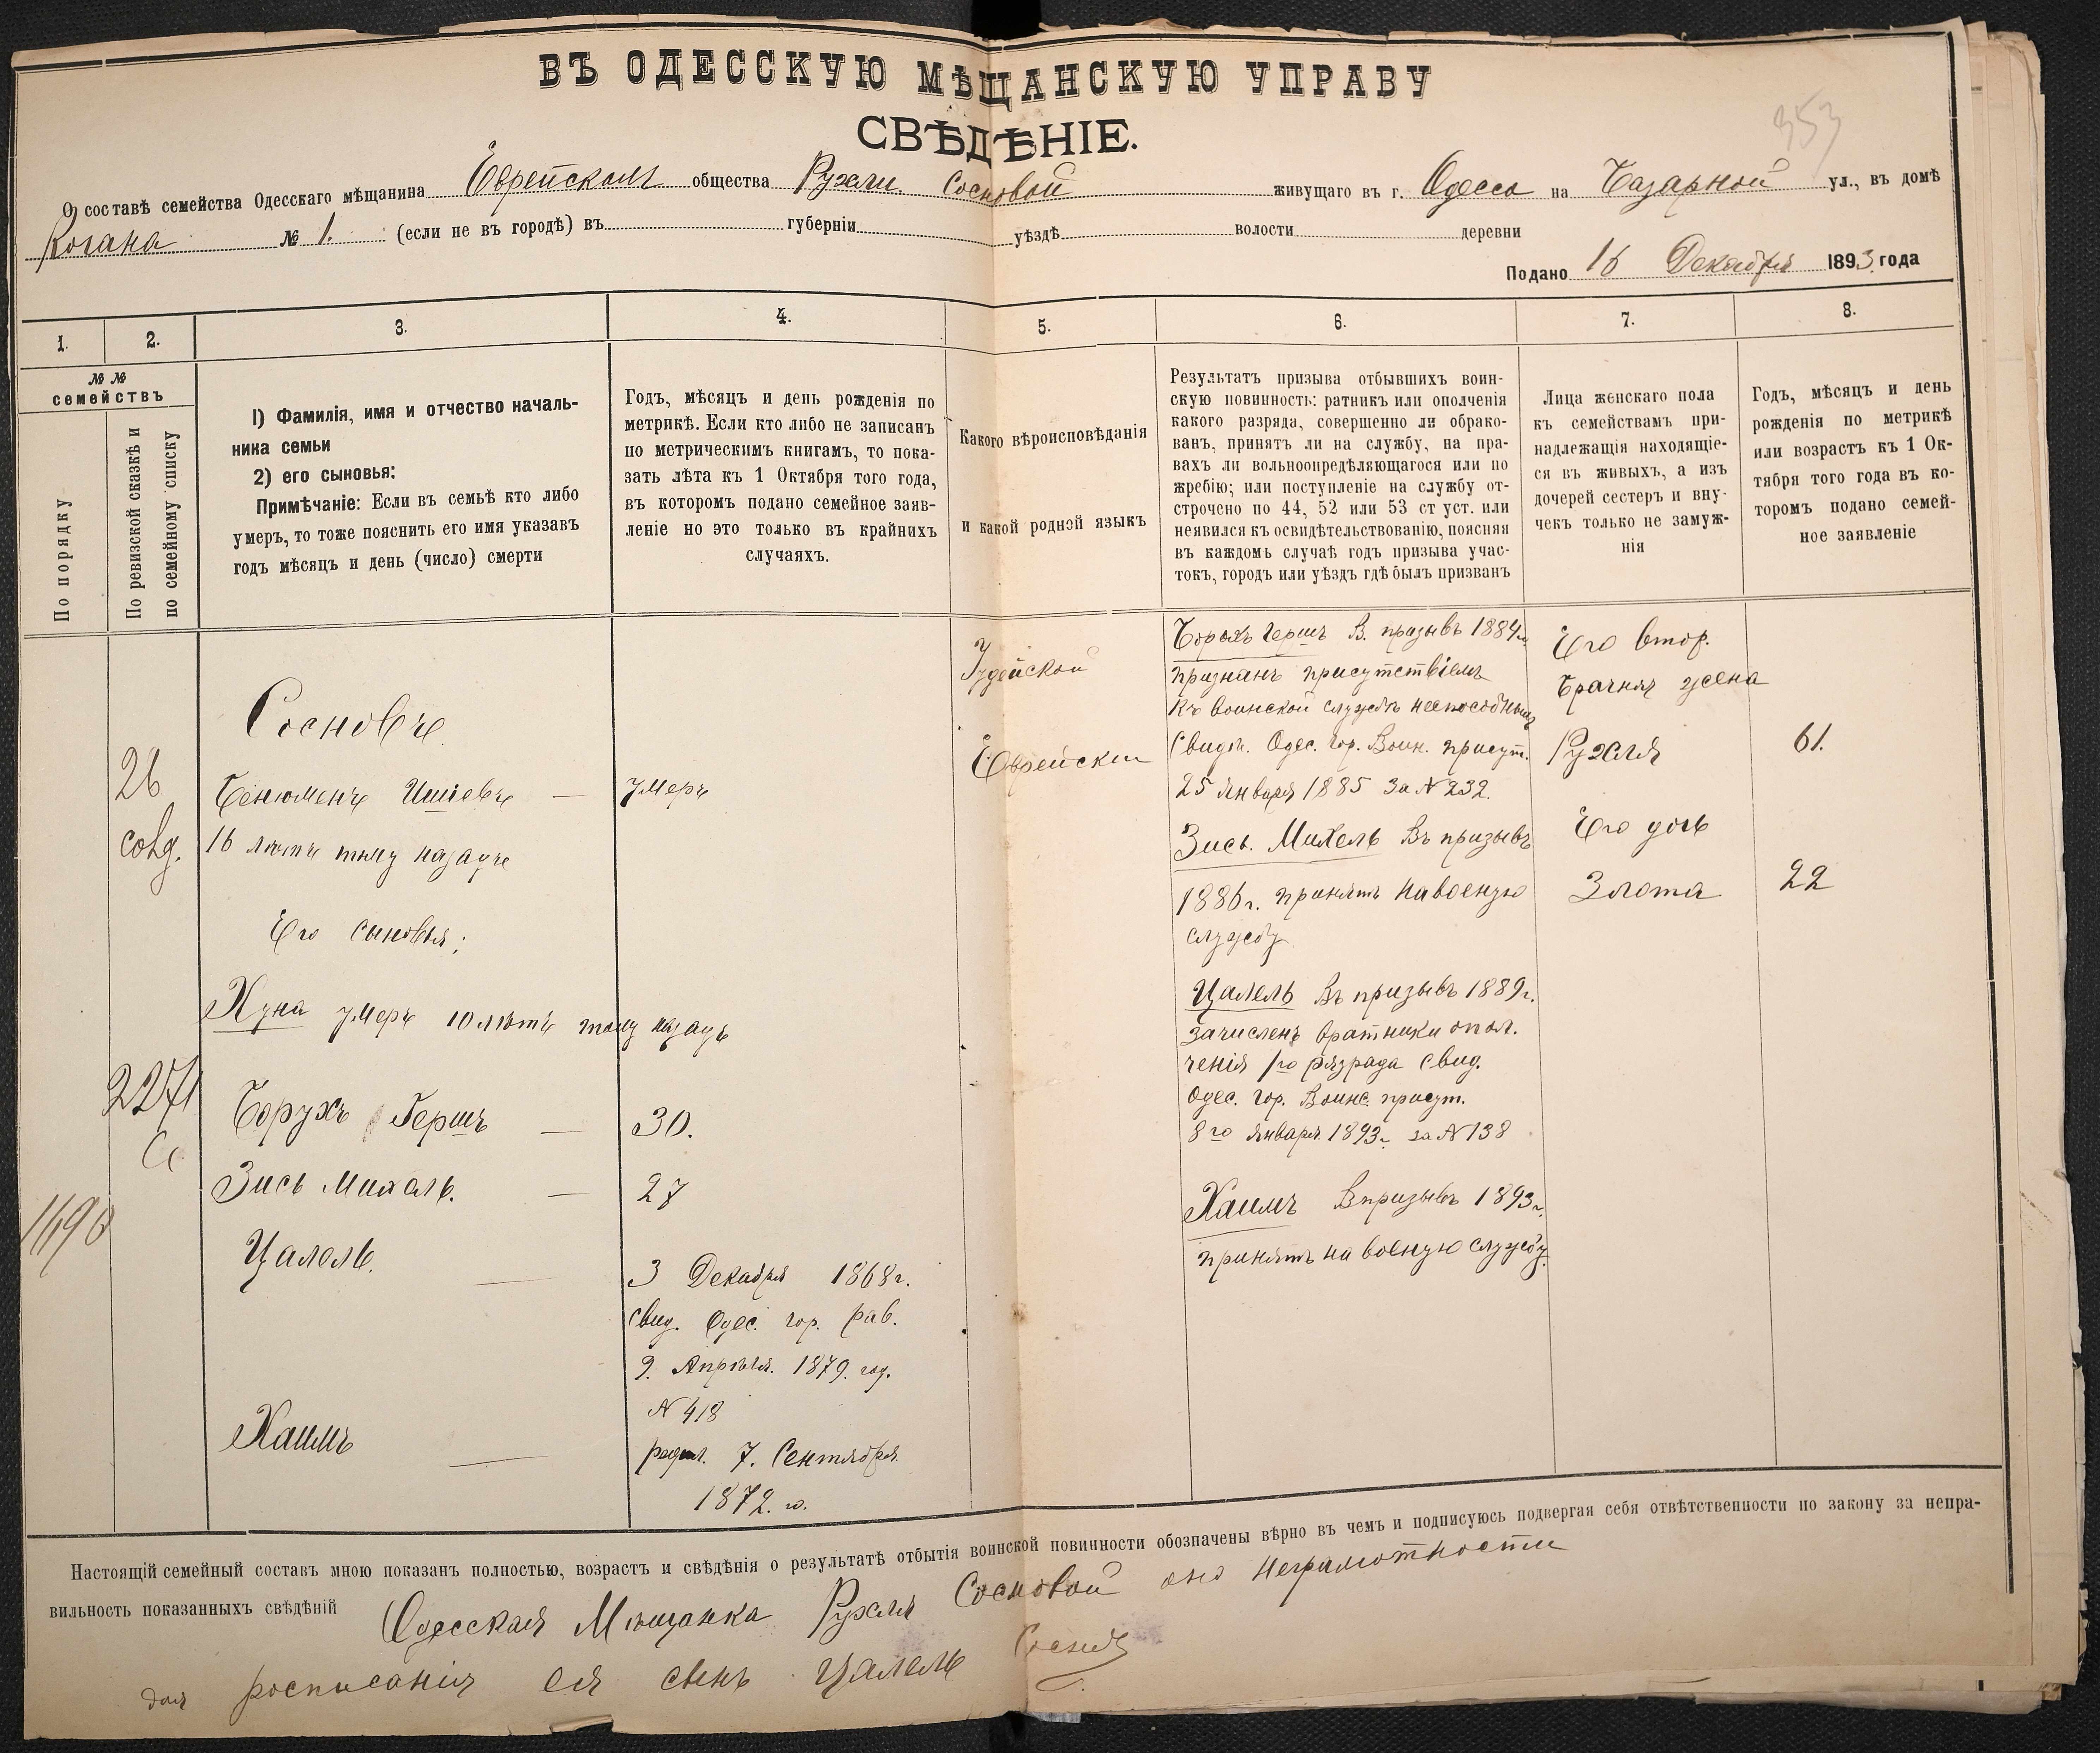 ВЪ ОДЕССКУЮ МѢЩАНСКУЮ УПРАВУ
СВѢДѢНІЕ.
353
О составѣ семейства Одесскаго мѣщанина Еврейскаго общества Рухли Сосновой живущаго въ г. Одесса на Базарной ул., въ домѣ
Когана № 1. (если не въ городѣ) въ губерніи уѣздѣ волости деревни
Подано 16 Декабря 1893 года
1. 2. 3. 4. 5. 6. 7. 8.
№ №
семействъ
По порядку
По ревизской сказкѣ и
по семейному списку
1) Фамилія, имя и отчество началь-
ника семьи
2) его сыновья:
Примѣчаніе: Если въ семьѣ кто либо
умеръ, то тоже пояснить его имя указавъ
годъ мѣсяцъ и день (число) смерти
Годъ, мѣсяцъ и день рожденія по
метрикѣ. Если кто либо не записанъ
по метрическимъ книгамъ, то пока-
зать лѣта къ 1 Октября того года,
въ которомъ подано семейное заяв-
леніе но это только въ крайнихъ
случаяхъ.
Какого вѣроисповѣданія
и какой родной языкъ
Результатъ призыва отбывшихъ воин-
скую повинность: ратникъ или ополченія
какого разряда, совершенно ли обрако-
ванъ, принятъ ли на службу, на пра-
вахъ ли вольноопредѣляющагося или по
жребію; или поступленіе на службу от-
строчено по 44, 52 или 53 ст уст. или
неявился къ освидѣтельствованію, поясняя
въ каждомъ случаѣ годъ призыва учас-
токъ, городъ или уѣздъ гдѣ былъ призванъ
Лица женскаго пола
къ семействамъ при-
надлежащія находящіе-
ся въ живыхъ, а изъ
дочерей сестеръ и вну-
чекъ только не замуж-
нія
Годъ, мѣсяцъ и день
рожденія по метрикѣ
или возрастъ къ 1 Ок-
тября того года въ ко-
торомъ подано семей-
ное заявленіе
26
2271
Сосновъ
Бенюменъ Ишіевъ —
16 лѣтъ тому назадъ
Его сыновья;
Хуна умеръ 10 лѣтъ тому назадъ
Борухъ Гершъ —
Зись Михель. —
Цалель. —
Хаимъ —
умеръ
30.
27
3 Декабря 1868 г.
свид. Одес. гор. рав.
9. Апрѣля. 1879. год.
N 418
родил. 7. Сентября.
1872. го.
Іудейской
Еврейскій
Борохъ Гершъ В. призывъ 1884 г.
признанъ присутствіемъ
къ воинской службѣ неспособнымъ
Свидѣ. Одес. Гор. Воин. присут.
25 Января 1885 за N 232.
Зись. Михель Въ призывъ
1886 г. принятъ на военую
службу
Цалель Въ призывъ 1889 г.
зачисленъ вратники опол.
ченія 1го разряда свид.
Одес. Гор. Воинс. присут.
8го Января 1893 г. за N 138
Хаимъ Впризывъ 1893 г.
принятъ на военую службу.
Его втор.
брачная жена
Рухля
Его дочь
Злота
61.
22
Настоящій семейный составъ мною показанъ полностью, возрастъ и свѣдѣнія о результатѣ отбытія воинской повинности обозначены вѣрно въ чемъ и подписуюсь подвергая себя отвѣтственности по закону за непра-
вильность показанныхъ свѣдѣній Одесская Мѣщанка Рухля Сосновой неграмотности
росписанія ея сынъ Цалель